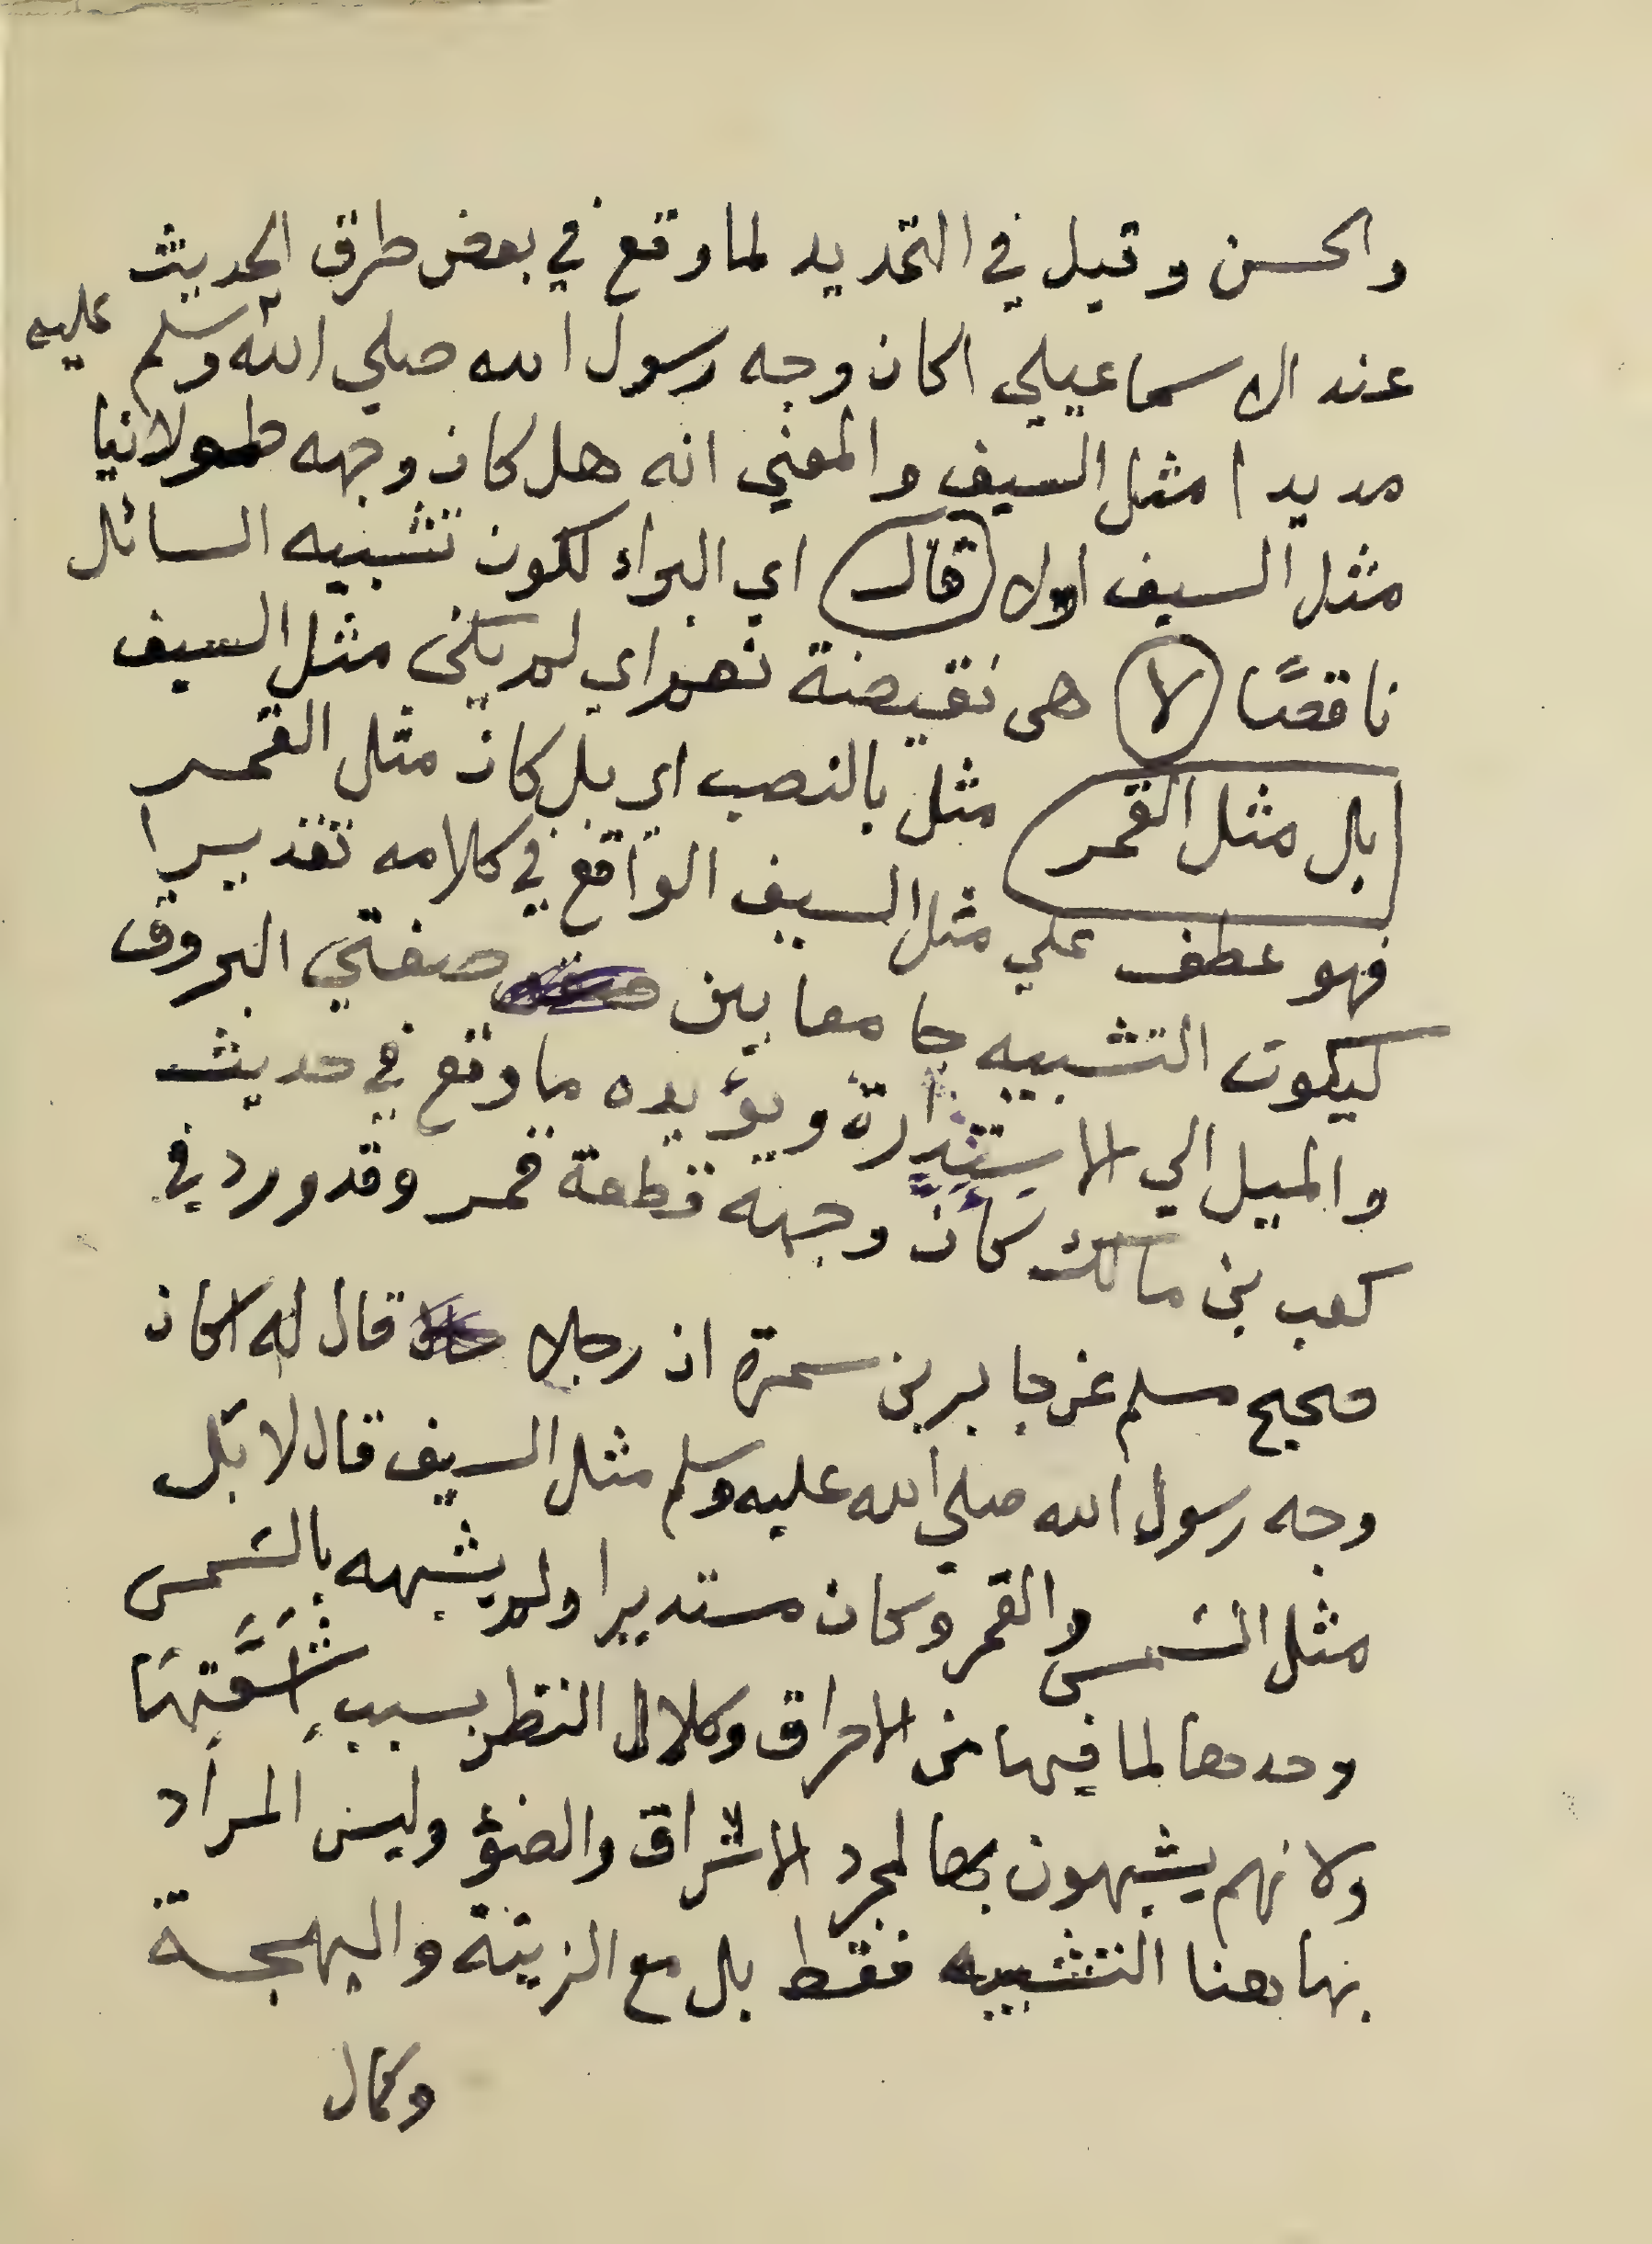 والحسن وقيل في التحديد لما وقع في بعض طرق الحديث
عند الاسماعيلي اكان وجه رسول الله صلي الله وسلم عليه
مديدا مثل السيف والمعني انه هل كان وجهه طولانيا
مثل السيف اولا قال اي البراء لكون تشبيه السائل
ناقصًا لا هي نقيضة نعم اي لم يكن مثل السيف
بل مثل القمر مثل بالنصب اي بل كان مثل القمر
فهو عطف علي مثل السيف الواقع في كلامه تقديرا
ليكون التشبيه جامعا بين صفتي البروق
والميل الي الاستدارة ويؤيده ما وقع في حديث
كعب بن مالك كان وجهه قطعة قمر وقد ورد في
صحيح مسلم عن جابر بن سمرة ان رجلا قال له اكان
وجه رسول الله صلي الله عليه وسلم مثل السيف قال لا بل
مثل الشمس والقمر وكان مستديرا ولم يشبهه بالشمس
وحدها لما فيها من الاحراق وكلال النظر بسبب
ولانهم يشبهون بها لمجرد الاشراق والضؤ وليس المراد
بها هنا التشبيه فقط بل مع الزينة والبهجة
وكمال